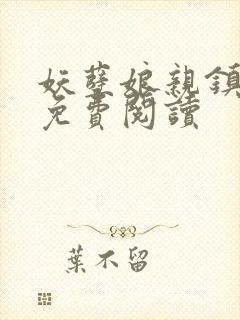 妖孽娘親鎮
免費閱讀
葉不留